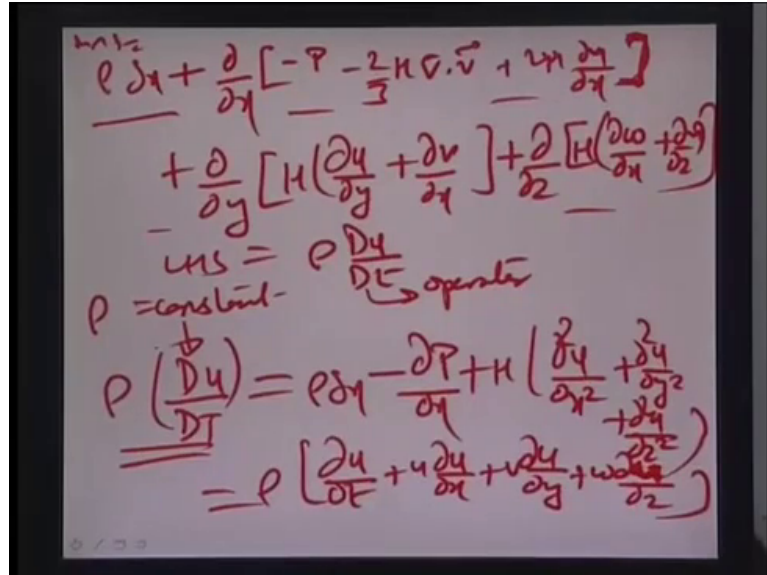 ρ g_x + ∂/∂x [ -P - 2/3 μ ∇.v⃗ + 2μ ∂u/∂x ]
+ ∂/∂y [ μ ( ∂u/∂y + ∂v/∂x ] + ∂/∂z [ μ ( ∂w/∂x + ∂u/∂z ) ]
LHS = ρ Du/Dt → operator
ρ = constant
ρ ( Du/DT ) = ρg_x - ∂P/∂x + μ ( ∂²u/∂x² + ∂²u/∂y²
+ ∂²u/∂z² )
= ρ [ ∂u/∂t + u ∂u/∂x + v ∂u/∂y + w ∂u/∂z ]